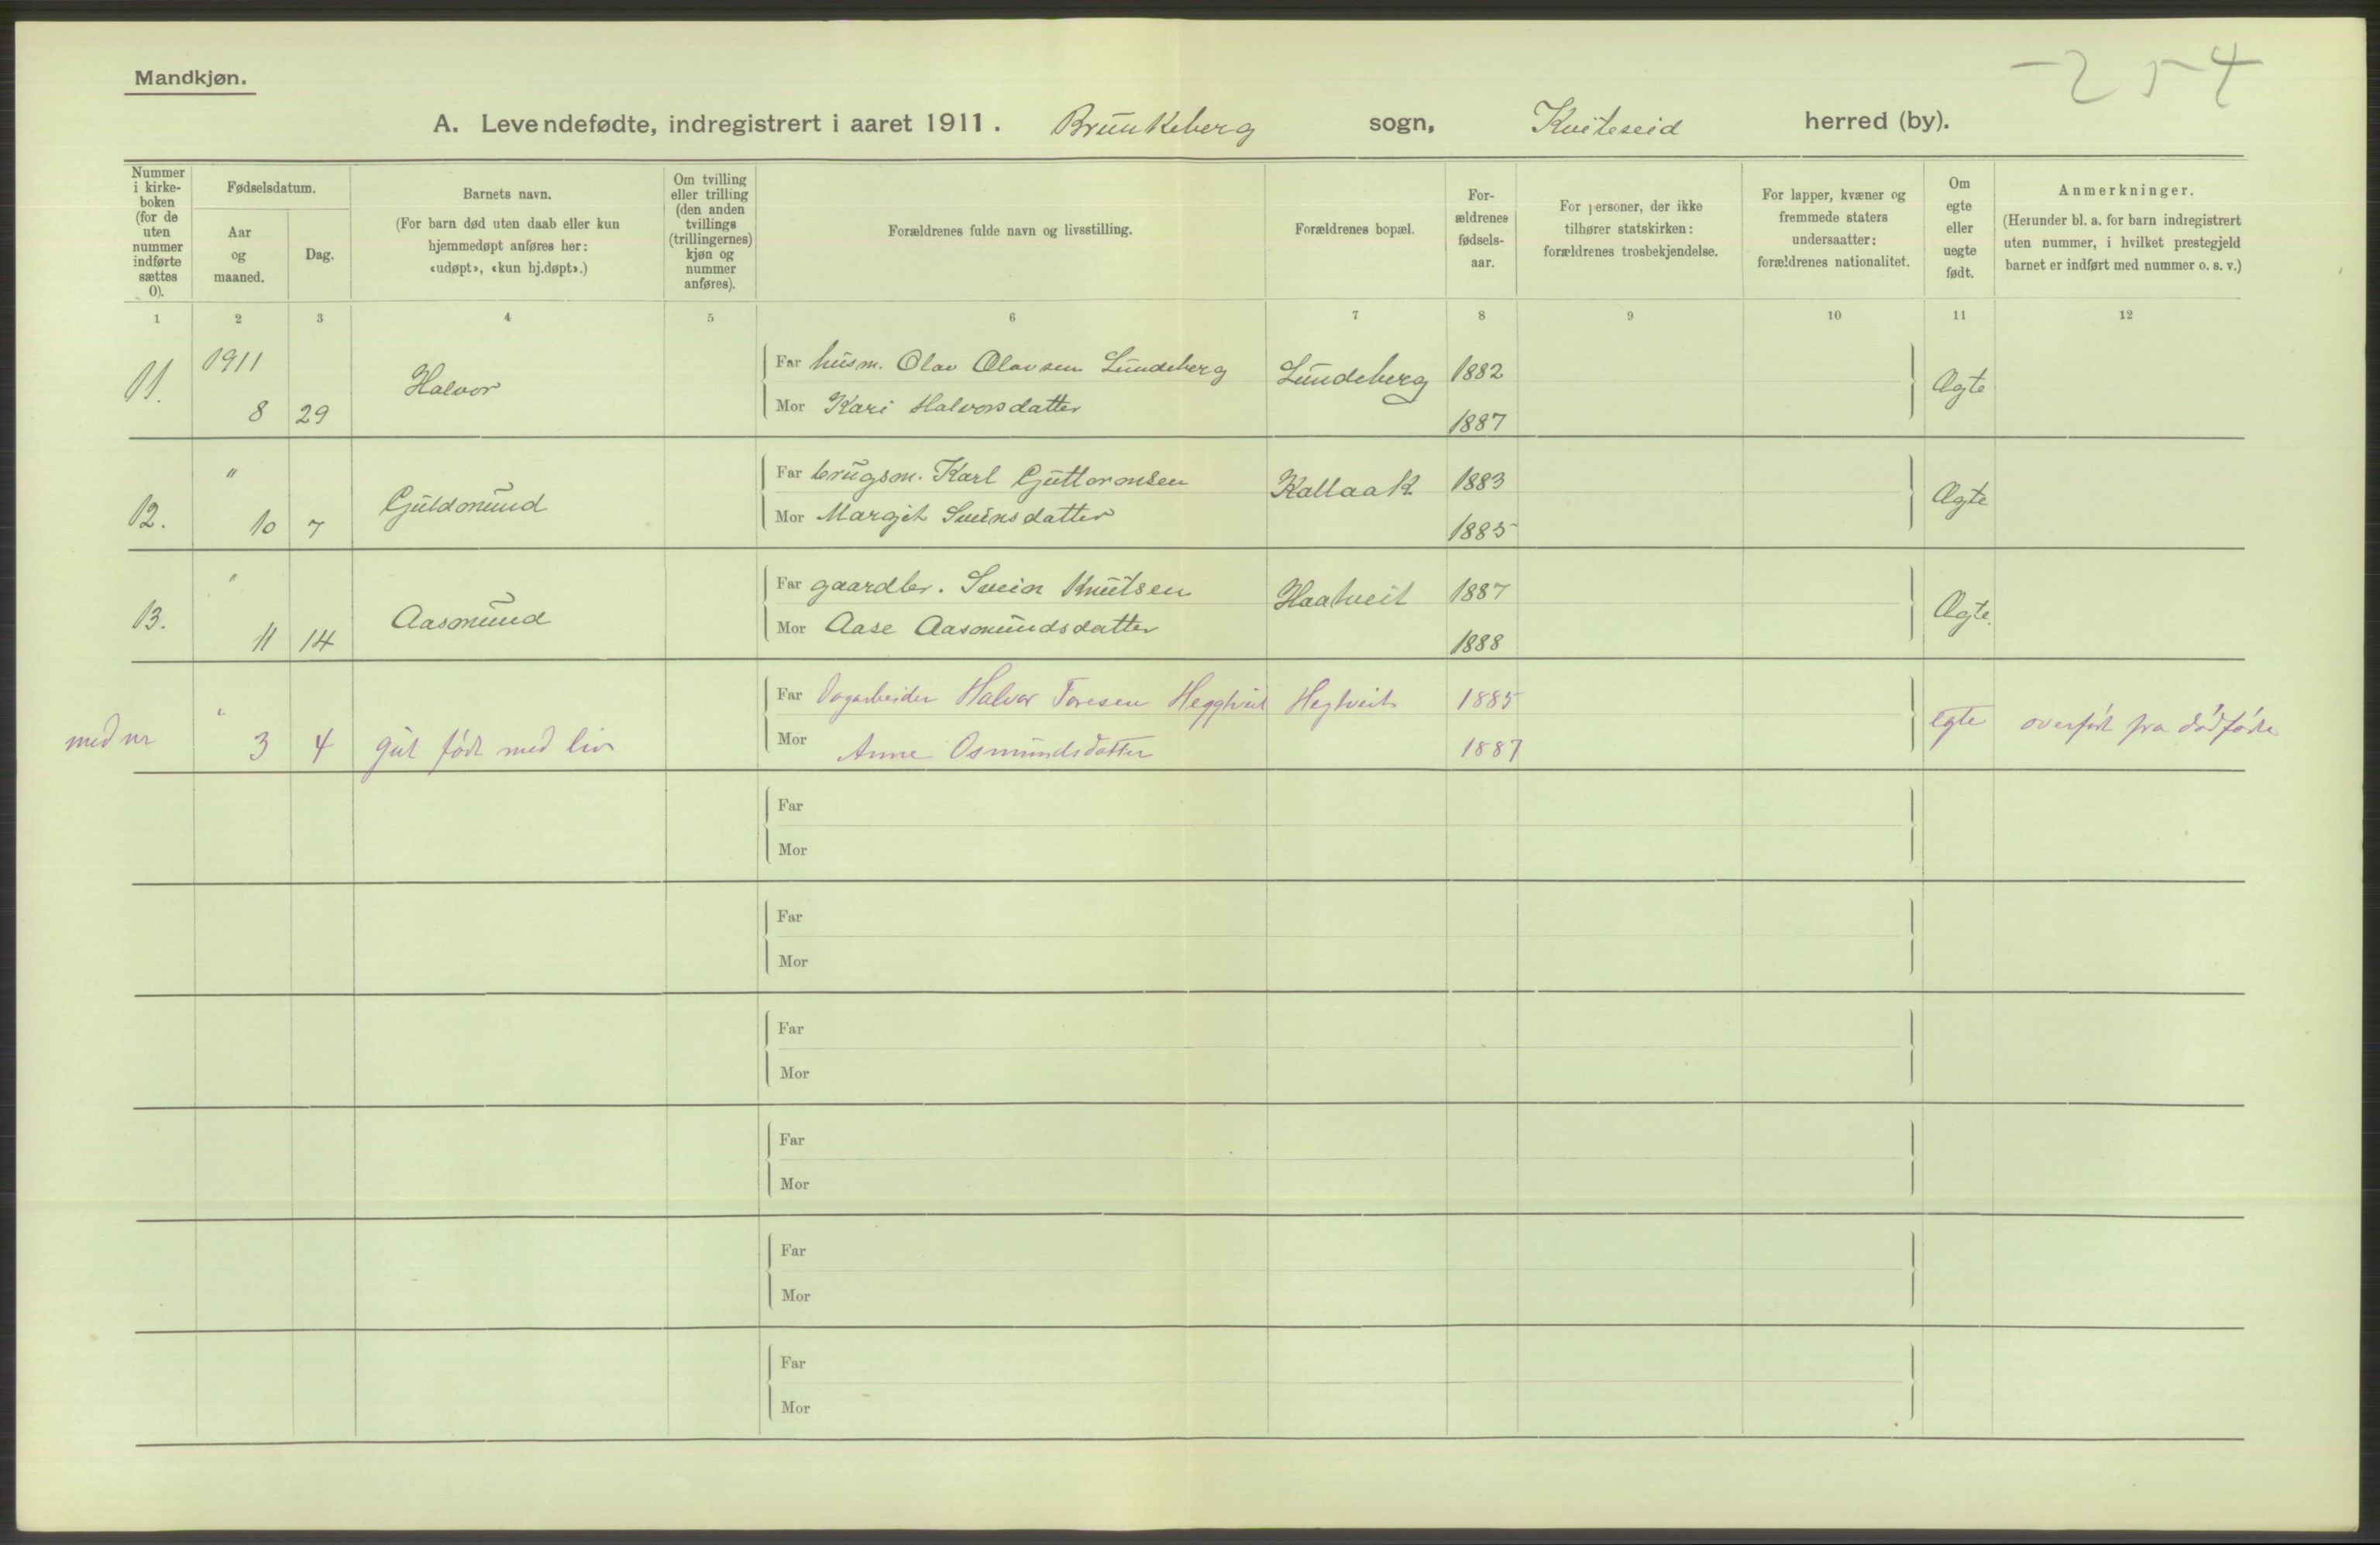 Mandkjøn.
254
A. Levendefødte, indregistrert i aaret 1911. Brunkeberg sogn, Kviteseid herred (by).
Nummer i kirkeboken (for de uten nummer indførte sættes 0).
Fødselsdatum.
Aar og maaned.
Dag.
Barnets navn.
(For barn død uten daab eller kun hjemmedøpt anføres her: «udøpt», «kun hj.døpt».)
Om tvilling eller trilling (den anden tvillings (trillingernes) kjøn og nummer anføres).
Forældrenes fulde navn og livsstilling.
Forældrenes bopæl.
Forældrenes fødselsaar.
For personer, der ikke tilhører statskirken: forældrenes trosbekjendelse.
For lapper, kvæner og fremmede staters undersaatter: forældrenes nationalitet.
Om egte eller uegte født.
Anmerkninger.
(Herunder bl. a. for barn indregistrert uten nummer, i hvilket prestegjeld barnet er indført med nummer o. s. v.)
1 2 3 4 5 6 7 8 9 10 11 12
11. 1911 8 29 Halvor
Far husm. Olav Olavsen Lundeberg Lundeberg 1882 Ægte
Mor Kari Halvorsdatter 1887
12. " 10 7 Guldmund
Far brugsm. Karl Guttormsen Kallaak 1883 Ægte
Mor Margit Sveinsdatter 1885
13. " 11 14 Aasmund
Far gaardbr. Svein Knutsen Haatveit 1887 Ægte.
Mor Aase Aasmundsdatter 1888
med nr " 3 4 gut født med liv
Far Dagarbeider Halvor Toresen Heggtveit Hegtveit 1885 Egte overført fra dødfødte
Mor Anne Osmundsdatter 1887
Far
Mor
Far
Mor
Far
Mor
Far
Mor
Far
Mor
Far
Mor